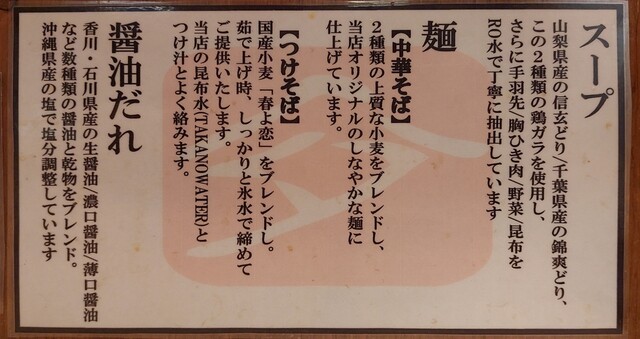 スープ
山梨県産の信玄どり/千葉県産の錦爽どり、
この2種類の鶏ガラを使用し、
さらに手羽先/胸ひき肉/野菜/昆布を
RO水で丁寧に抽出しています
麺
【中華そば】
2種類の上質な小麦をブレンドし、
当店オリジナルのしなやかな麺に
仕上げています。
【つけそば】
国産小麦「春よ恋」をブレンドし。
茹で上げ時、しっかりと氷水で締めて
ご提供いたします。
当店の昆布水(TAKANOWATER)と
つけ汁とよく絡みます。
醤油だれ
香川・石川県産の生醤油/濃口醤油/薄口醤油
など数種類の醤油と乾物をブレンド。
沖縄県産の塩で塩分調整しています